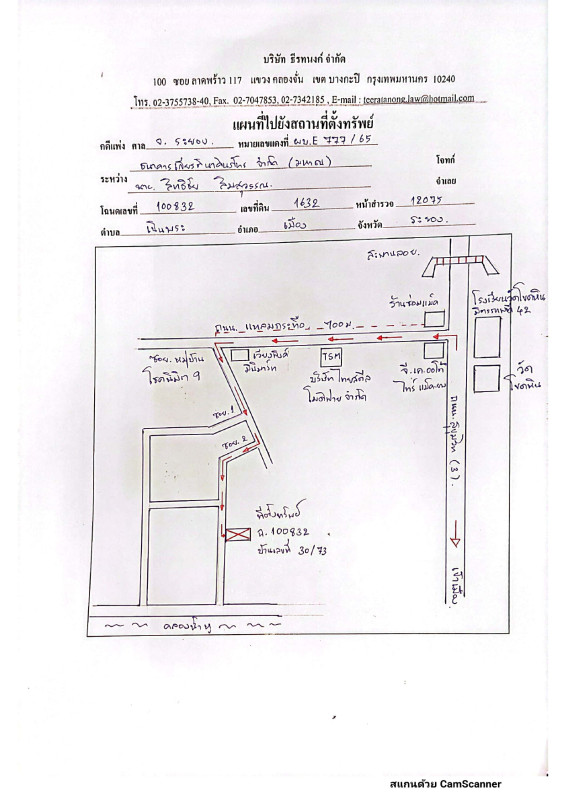 บริษัท ธีรทนงก์ จำกัด
100 ซอย ลาดพร้าว 117 แขวง คลองจั่น เขต บางกะปิ กรุงเทพมหานคร 10240
โทร. 02-3755738-40, Fax. 02-7047853, 02-7342185 , E-mail : teeratanong.law@hotmail.com
แผนที่ไปยังสถานที่ตั้งทรัพย์
คดีแพ่ง ศาล จ. ระยอง. หมายเลขแดงที่ ผบ.E 777 / 65
ธนาคารเกียรตินาคินภัทร จำกัด (มหาชน) โจทก์
ระหว่าง
นาย. สิทธิชัย ลิ้มสุวรรณ. จำเลย
โฉนดเลขที่ 100832 เลขที่ดิน 1632 หน้าสำรวจ 12075
ตำบล เนินพระ อำเภอ เมือง จังหวัด ระยอง.
สะพานลอย.
ร้านซ่อมแม็ค
โรงเรียนวัดโขดหิน
มิตรภาพที่ 42
ถนน. แหลมกระทึง 700 ม.
ซอย. หมู่บ้าน
โชคนิมิต 9
เวียงพิงค์
มินิมาร์ท
TSM
บริษัท ไทยสตีล
โมดิฟาย จำกัด
จี.เค.ออโต้
ไทร์ แม็ค
วัด
โขดหิน
ซอย. 1
ซอย. 2
ถนน. สุขุมวิท (3).
ที่ตั้งทรัพย์
ฉ. 100832
บ้านเลขที่ 30/73
เข้าเมือง
คลองน้ำหู
สแกนด้วย CamScanner